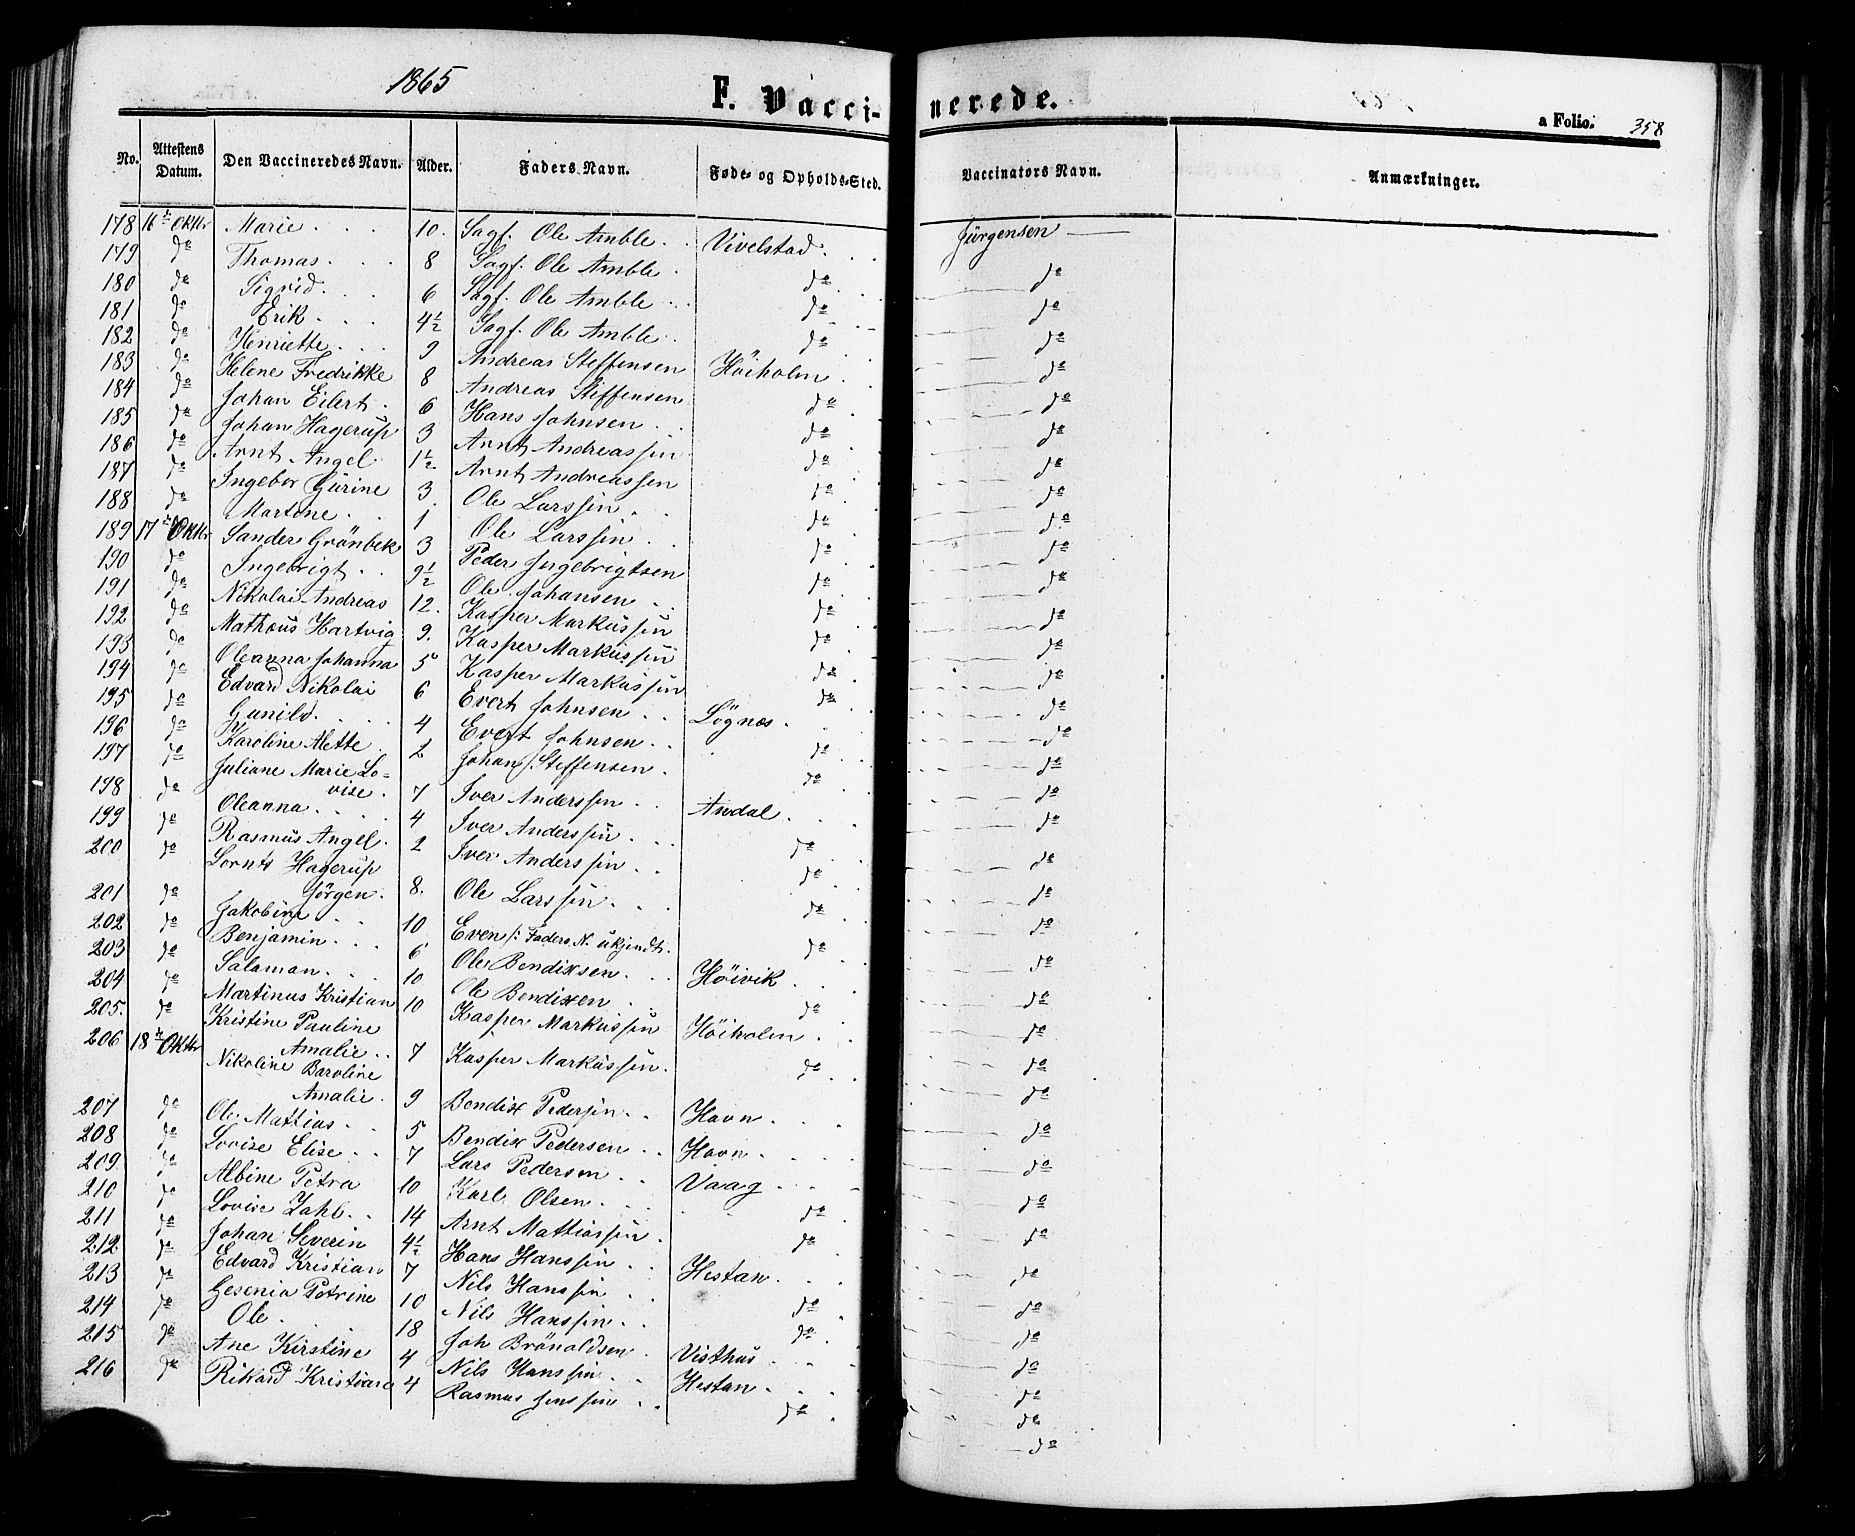 1865
F. Vacci-
nerede.
a Folio.
358
No. Attestens Datum. Den Vaccineredes Navn. Alder. Faders Navn. Føde- og Opholds-Sted. Vaccinators Navn. Anmærkninger.
178 16de Oktbr Marie 10. Sagf. Ole Amble Vivelstad Jürgensen
179 do Thomas 8 Sagf. Ole Amble do do
180 do Sigrid 6 Sagf. Ole Amble do do
181 do Erik 4½ Sagf. Ole Amble do do
182 do Henriette 9 Andreas Steffensen Höiholm do
183 do Helene Fredrikke 8 Andreas Steffensen do do
184 do Johan Eilert 6 Hans Johnsen do do
185 do Johan Hagerup 3 Arnt Andreassen do do
186 do Arnt Angel 1½ Arnt Andreassen do do
187 do Ingebor Gurine 3 Ole Larssen do do
188 do Martine 1 Ole Larssen do do
189 17de Oktbr Sander Grönbek 3 Peder Ingebrigtsen do do
190 do Ingebrigt 9½ Ole Johansen do do
191 do Nikolai Andreas 12. Kasper Markussen do do
192 do Mathæus Hartvig 9. Kasper Markussen do do
193 do Oleanna Johanna 5 Kasper Markussen do do
194 do Edvard Nikolai 6 Evert Johnsen Lögnæs do
195 do Gunild 4 Evert Johnsen do do
196 do Karoline Alette 2 Johan Steffensen do do
197 do Juliane Marie Lo-
vise 7 Iver Anderssen Andal do
198 do Oleanna 4 Iver Anderssen do do
199 do Rasmus Angel 2 Iver Anderssen do do
200 do Lornts Hagerup
Jörgen 8. Ole Larssen do do
201 do Jakobine 10 Even /: Faders N. ukjendt. do do
202 do Benjamin 6 Ole Bendixsen Höivik do
203 do Salaman 10 Ole Bendixen do do
204 do Martinus Kristian 10 Kasper Markussen Höiholm do
205. do Kristine Pauline
Amalie 7 Kasper Markussen do do
206 18de Oktbr Nikoline Baroline
Amalie 9 Bendix Pedersen Havn do
207 do Ole Mattias 5 Bendix Pedersen Havn do
208 do Lovise Elise 7 Lars Pedersen Vaag do
209 do Albine Petra 10 Karl Olsen do do
210 do Lovise Zahl 14 Arnt Mattiassen do do
211 do Johan Severin 4½ Hans Hanssen Hestan do
212 do Edvard Kristian 7 Nils Hanssen do do
213 do Gesenia Petrine 10 Nils Hanssen do do
214 do Ole 18 Joh Brönoldsen Visthus do
215 do Ane Kirstine 4 Nils Hanssen Hestan do
216 do Rikard Kristian 4 Rasmus Jenssen do do